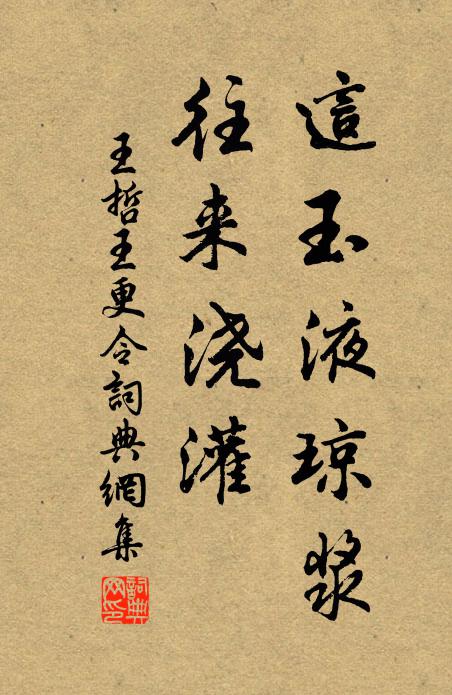 這玉液琼浆
往来浇灌
王哲王更令詞典網集
詞典网印